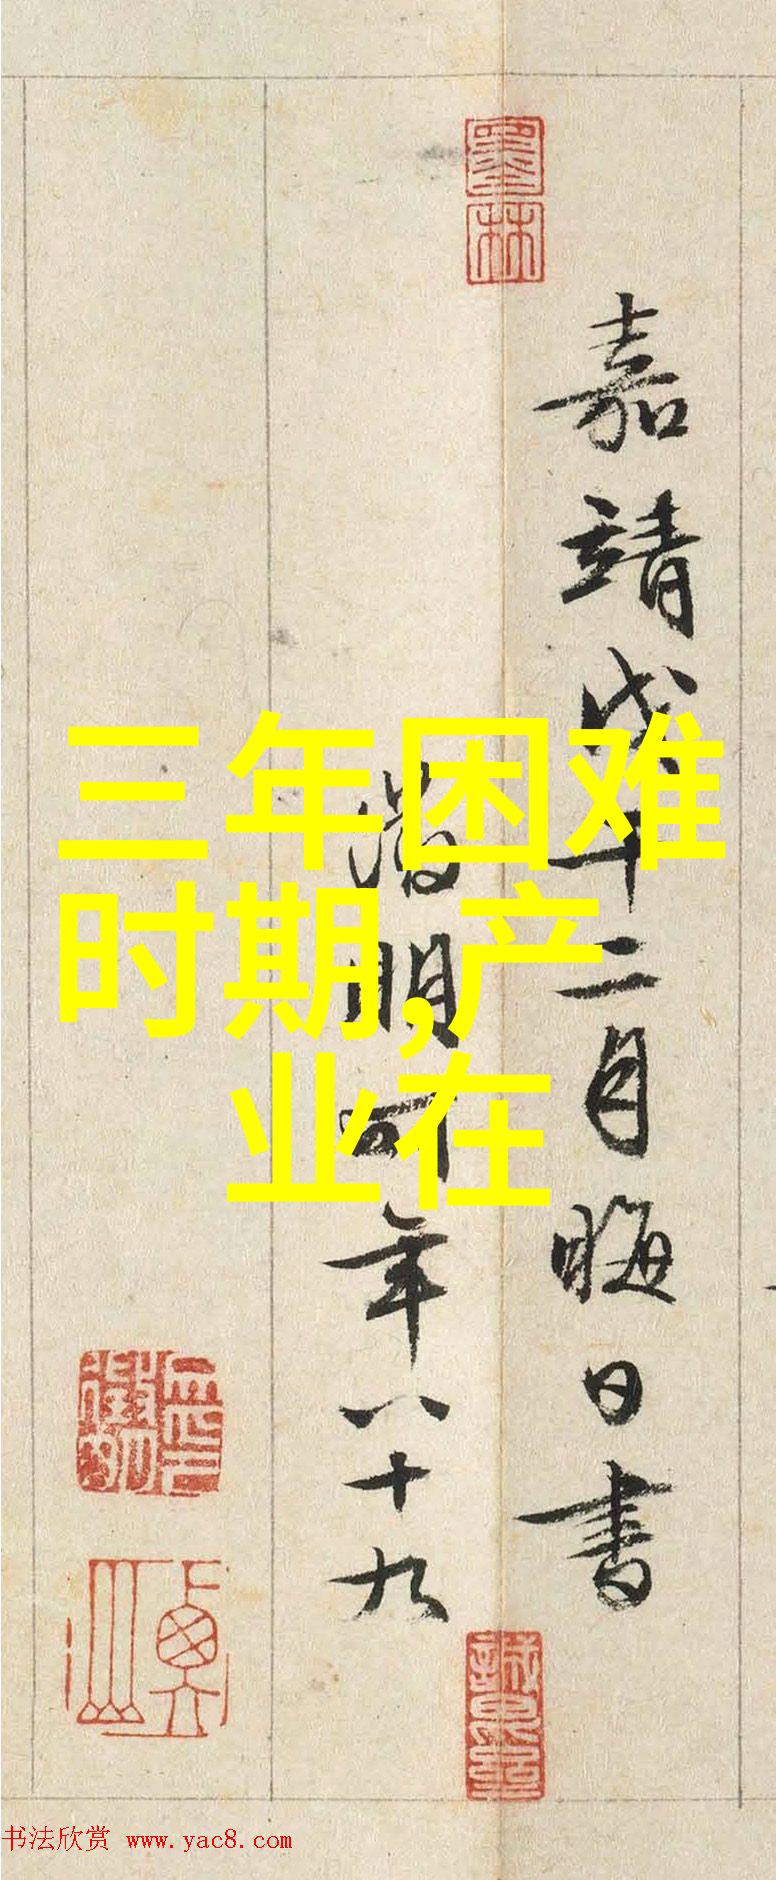 三年困难
时期,产
业在
嘉靖戊午二月晦日书
明时年八十九
墨林
书法欣赏 www.yac8.com